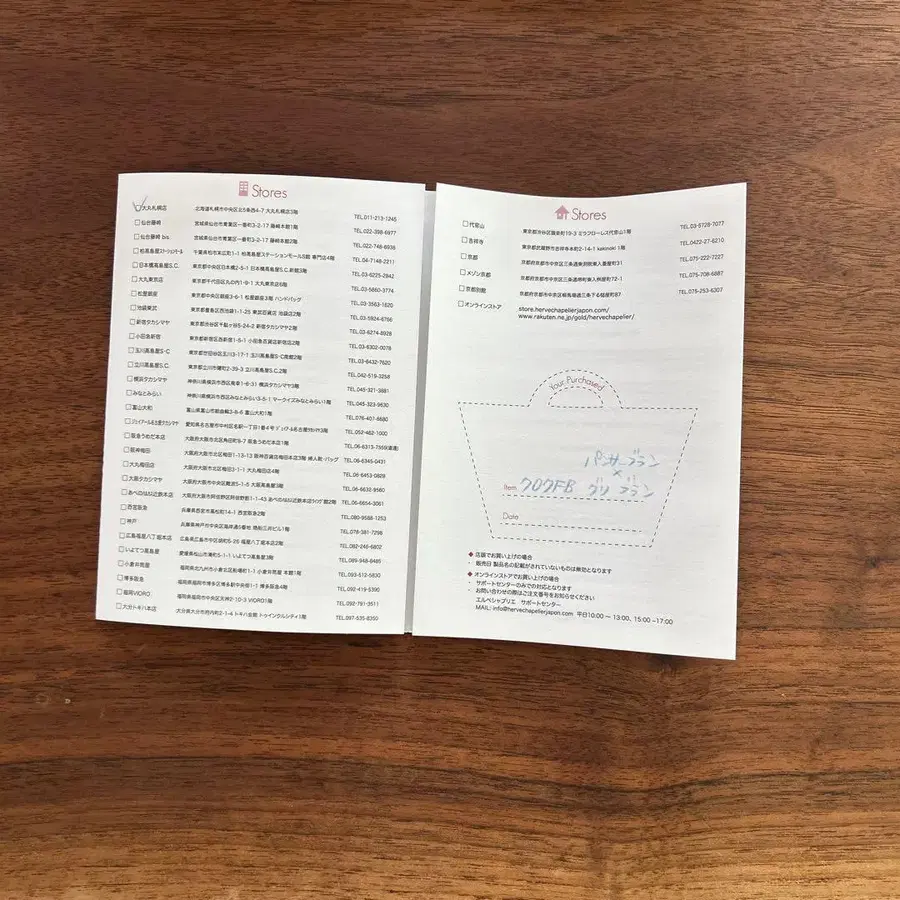 Stores
大丸札幌店 北海道札幌市中央区北5条西4-7 大丸札幌店3階 TEL.011-213-1246
仙台藤崎 宮城県仙台市青葉区一番町3-2-17 藤崎本館1階 TEL.022-398-6977
仙台藤崎 bis. 宮城県仙台市青葉区一番町3-2-17 藤崎本館2階 TEL.022-748-6938
柏髙島屋ステーションモール 千葉県柏市末広町1-1 柏髙島屋ステーションモールS館 専門店4階 TEL.04-7148-2211
日本橋髙島屋S.C. 東京都中央区日本橋2-5-1 日本橋髙島屋S.C.新館3階 TEL.03-6225-2842
大丸東京店 東京都千代田区丸の内1-9-1 大丸東京店6階 TEL.03-5860-3774
松屋銀座 東京都中央区銀座3-6-1 松屋銀座3階 ハンドバッグ TEL.03-3563-1620
池袋東武 東京都豊島区西池袋1-1-25 東武百貨店 池袋店2階 TEL.03-5924-6766
新宿タカシマヤ 東京都渋谷区千駄ヶ谷5-24-2 新宿タカシマヤ2階 TEL.03-6274-8928
小田急新宿 東京都新宿区西新宿1-5-1 小田急百貨店新宿店2階 TEL.03-6302-0078
玉川髙島屋S・C 東京都世田谷区玉川3-17-1 玉川髙島屋S・C南館2階 TEL.03-6432-7620
立川髙島屋S.C. 東京都立川市曙町2-39-3 立川髙島屋S.C.2階 TEL.042-519-3258
横浜タカシマヤ 神奈川県横浜市西区南幸1-6-31 横浜タカシマヤ3階 TEL.045-321-3681
みなとみらい 神奈川県横浜市西区みなとみらい3-5-1 マークイズみなとみらい1階 TEL.045-323-9630
富山大和 富山県富山市総曲輪3-8-6 富山大和1階 TEL.076-407-6680
ジェイアール名古屋タカシマヤ 愛知県名古屋市中村区名駅一丁目1番4号 ジェイアール名古屋タカシマヤ3階 TEL.052-462-1000
阪急うめだ本店 大阪府大阪市北区角田町8-7 阪急うめだ本店1階 TEL.06-6313-7359(直通)
阪神梅田 大阪府大阪市北区梅田1-13-13 阪神百貨店梅田本店3階 婦人靴・バッグ TEL.06-6345-0431
大丸梅田店 大阪府大阪市北区梅田3-1-1 大丸梅田店4階 TEL.06-6453-0828
大阪タカシマヤ 大阪府大阪市中央区難波5-1-5 大阪髙島屋3階 TEL.06-6632-9580
あべのはるかす近鉄本店 大阪府大阪市阿倍野区阿倍野筋1-1-43 あべのはるかす近鉄本店ウイング館2階 TEL.06-6654-3061
西宮阪急 兵庫県西宮市高松町14-1 西宮阪急2階 TEL.080-9588-1253
神戸 兵庫県神戸市中央区海岸通5番地 商船三井ビル1階 TEL.078-381-7298
広島福屋八丁堀本店 広島県広島市中区胡町6-26 福屋八丁堀本店2階 TEL.082-246-6802
いよてつ髙島屋 愛媛県松山市湊町5-1-1 いよてつ髙島屋3階 TEL.089-948-8485
小倉井筒屋 福岡県北九州市小倉北区船場町1-1 小倉井筒屋 本館1階 TEL.093-512-5830
博多阪急 福岡県福岡市博多区博多駅中央街1-1 博多阪急4階 TEL.092-419-5390
福岡VIORO 福岡県福岡市中央区天神2-10-3 VIORO1階 TEL.092-791-3511
大分トキハ本店 大分県大分市府内町2-1-4 トキハ会館 トゥインクルシティ1階 TEL.097-535-8350
Stores
代官山 東京都渋谷区猿楽町19-3 ミラフローレス代官山1階 TEL.03-5728-7077
吉祥寺 東京都武蔵野市吉祥寺本町2-14-1 kakinoki 1階 TEL.0422-27-6210
京都 京都府京都市中京区三条通柳馬場東入 TEL.075-222-7227
メゾン京都 京都府京都市中京区三条通堺町東入桝屋町72-1 TEL.075-708-6887
京都別館 京都府京都市中京区柳馬場通三条下る槌屋町87 TEL.075-253-6307
オンラインストア store.hervechapelierjapon.com/
www.rakuten.ne.jp/gold/hervechapelier/
Your Purchased
パンサーブラン
×
Item 707FB グリ ブラン
Date
◆ 店頭でお買い上げの場合
・ 販売日 製品名の記載がされていないものは無効となります
◆ オンラインストアでお買い上げの場合
・ サポートセンターのみでの対応となります
・ お問い合わせの際はご注文番号をお知らせください
エルベシャプリエ サポートセンター
MAIL: info@hervechapelierjapon.com 平日10:00 ー 13:00、15:00 -17:00